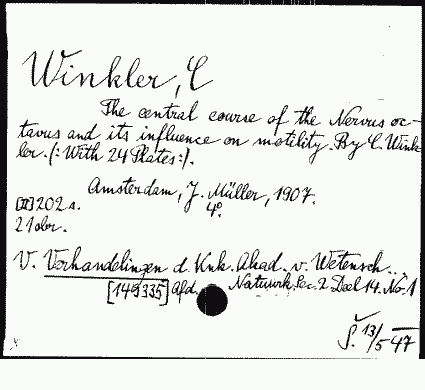 Winkler, C
The central course of the Nervus oc-
tavus and its influence on motility. By C. Wink-
ler. (: With 24 Plates :).
Amsterdam, J. Müller, 1907.
[II] 202 s. 4º.
21 obr.
V. Verhandelingen d. Knk. Akad. v. Wetensch...
[149335] Afd. Natuurk. Sec. 2 Deel 14. No. 1
Š. 13/5 47